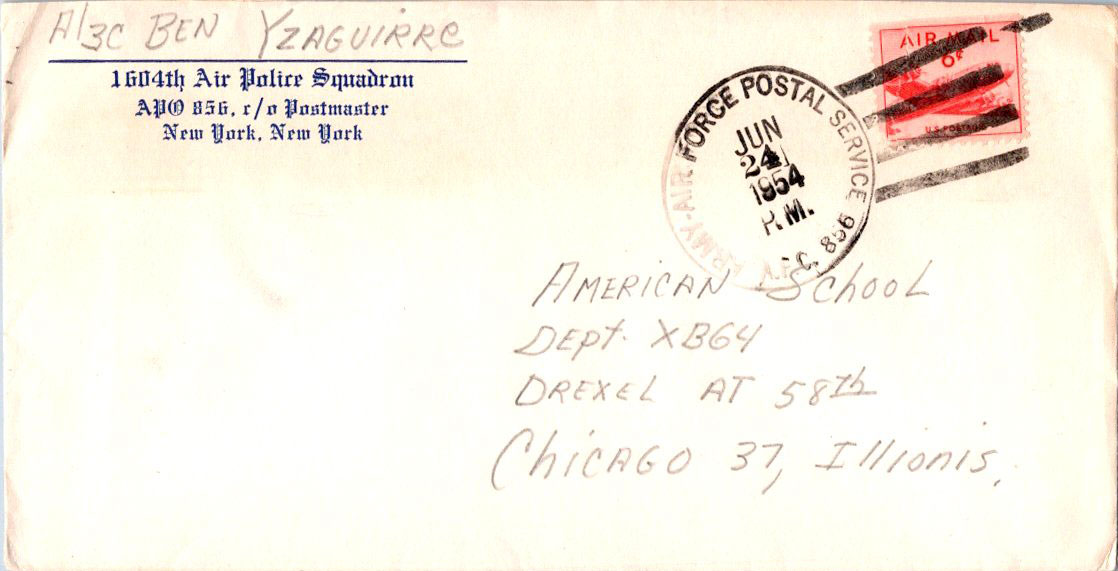 A/3C BEN YZAGUIRRE
1604th Air Police Squadron
APO 856, c/o Postmaster
New York, New York
ARMY-AIR FORCE POSTAL SERVICE 856
JUN
24
1954
P.M.
AIR MAIL
6¢
U.S. POSTAGE
AMERICAN SchooL
DEpt. XB64
DREXEL AT 58th
ChicAGO 37, Illionis.